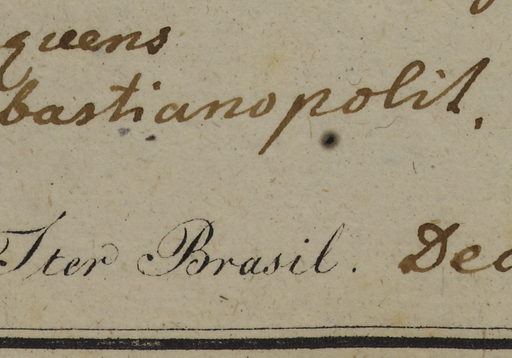 quens
bastianopolit,
Iter Brasil. Dec